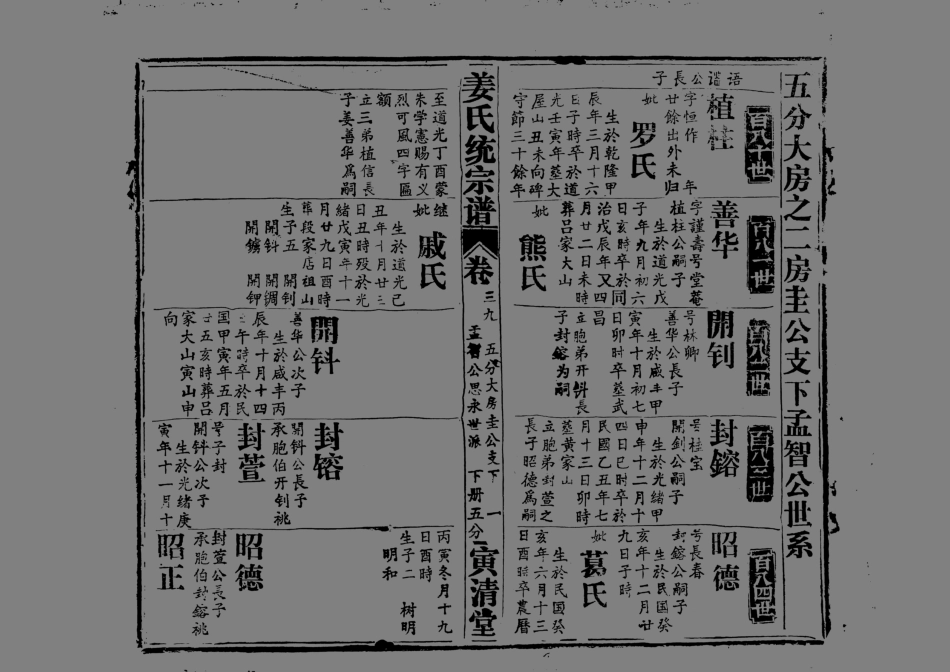 五分大房之二房圭公支下孟智公世系
百八十世
语谵公長子
植桂
字恒作 年
廿餘出外未归
妣
罗氏
生於乾隆甲
辰年三月十六
日子時卒於道
光壬寅年墓大
屋山丑未向碑
守節三十餘年
至道光丁酉蒙
朱学憲賜有义
烈可風四字區
額
立三弟植信長
子姜善华為嗣
百八一世
善华
字謹壽号堂菴
植柱公嗣子
生於道光戊
子年九月初六
日亥時卒於同
治戊辰年又四
月廿二日未時
葬吕家大山
妣
熊氏
继
妣
戚氏
生於道光己
丑年十月廿三
日丑時殁於光
緒戊寅年十一
月廿九日酉時
葬段家店祖山
生子五 開钊
開钭 開綢
開鏞 開钾
百八二世
開钊
号林卿
善华公長子
生於咸丰甲
寅年十月初七
日卯时卒墓武
昌
立胞弟开钭長
子封鎔为嗣
開钭
善华公次子
生於咸丰丙
辰年十月十四
午時卒於民
国甲寅年五月
廿五亥時葬吕
家大山寅山申
向
百八三世
封鎔
号桂宝
開釗公嗣子
生於光緒甲
申年十二月十
四日巳时卒於
民國乙丑年七
月十三日卯時
墓黄家山
立胞弟封萱之
長子昭德爲嗣
封镕
開钭公長子
承胞伯开钊祧
封萱
号子封
開钭公次子
生於光绪庚
寅年十一月十
百八四世
昭德
号長春
封鎔公嗣子
生於民國癸
亥年十二月廿
九日子時
妣
葛氏
生於民國癸
亥年六月十三
日酉時卒農曆
丙寅冬月十九
日酉時
生子二 树明
明和
昭德
封萱公長子
承胞伯封鎔祧
昭正
姜氏统宗谱
卷
三九
五分大房圭公支下 一
孟智公思永世派 下册五分
寅清堂